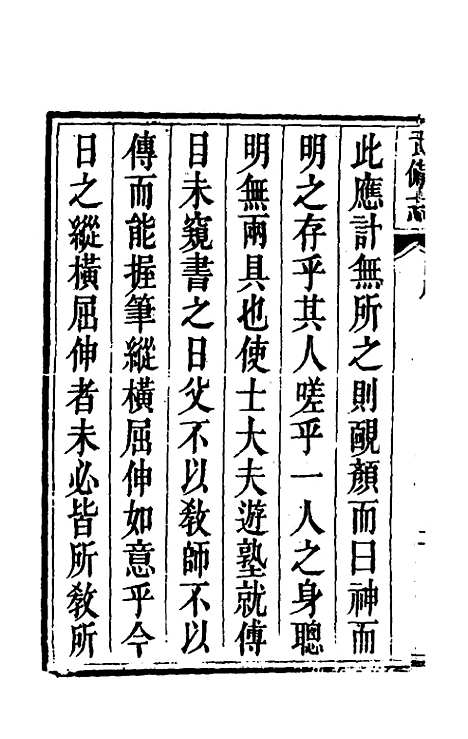 武備志
此應計無所之則靦顏而曰神而
明之存乎其人嗟乎一人之身聰
明無兩具也使士大夫遊塾就傅
目未窺書之日父不以敎師不以
傳而能握筆縱橫屈伸如意乎今
日之縱橫屈伸者未必皆所敎所